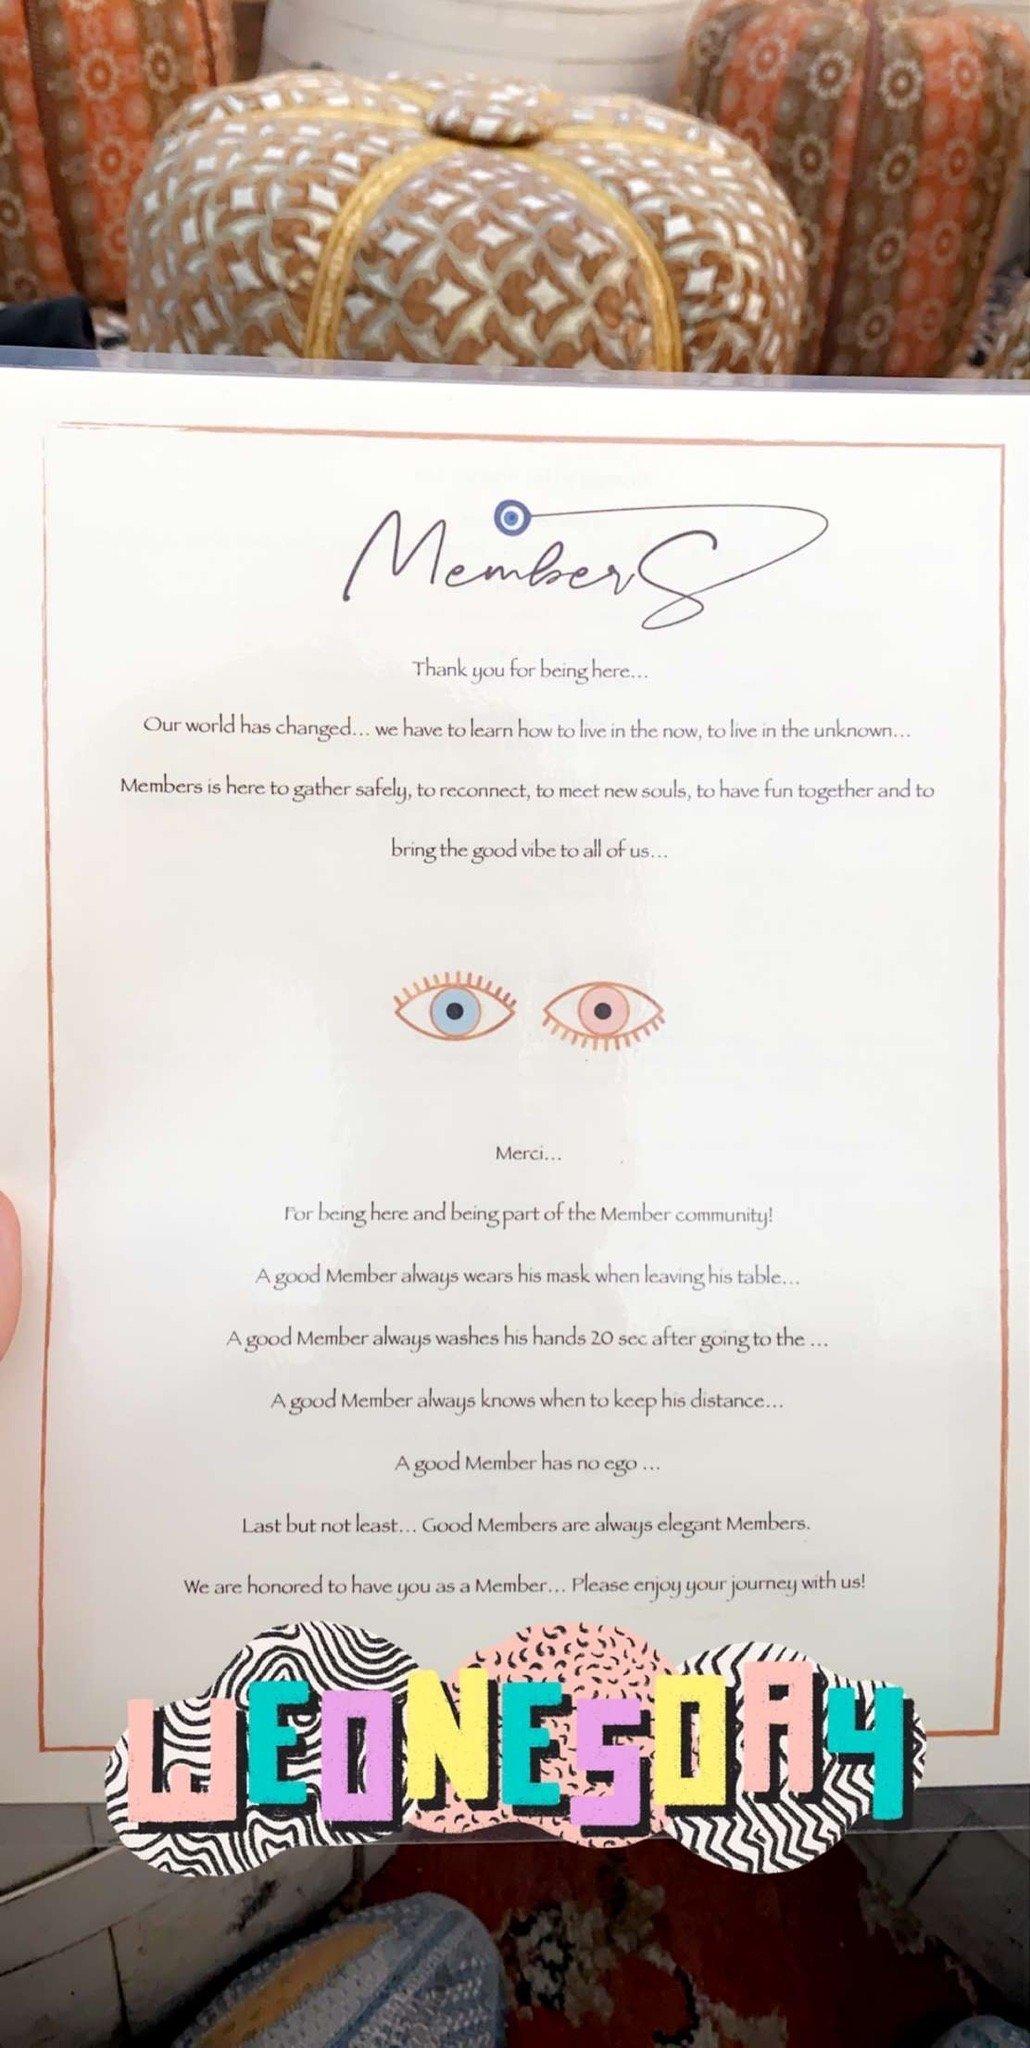 MemberS
Thank you for being here...
Our world has changed... we have to learn how to live in the now, to live in the unknown...
Members is here to gather safely, to reconnect, to meet new souls, to have fun together and to
bring the good vibe to all of us...
Merci...
For being here and being part of the Member community!
A good Member always wears his mask when leaving his table...
A good Member always washes his hands 20 sec after going to the ...
A good Member always knows when to keep his distance...
A good Member has no ego ...
Last but not least... Good Members are always elegant Members.
We are honored to have you as a Member... Please enjoy your journey with us!
WEDNESDAY